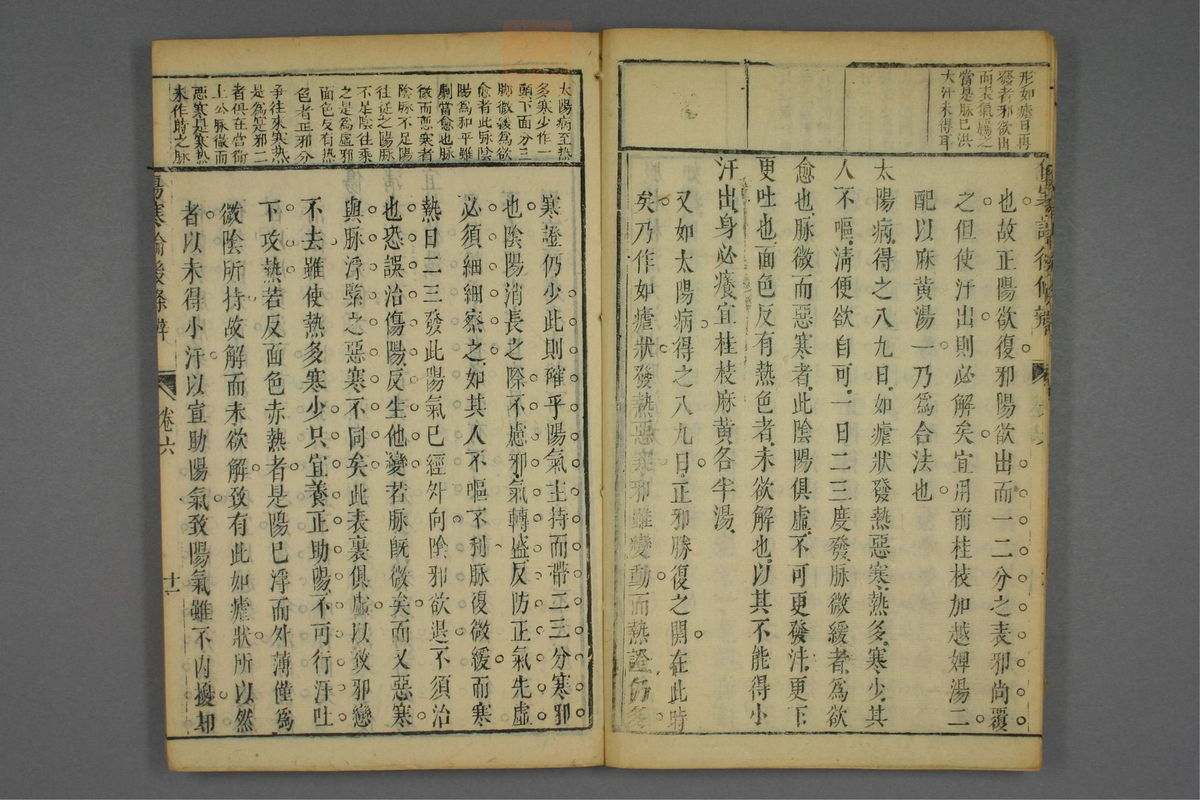 形如瘧日再
發者邪欲出
而表氣鬱之
當是脈已洪
大汗未得耳
也故正陽欲復邪陽欲出而一二分之表邪尚覆
之但使汗出則必解矣宜用前桂枝加越婢湯二
配以麻黃湯一乃爲合法也
太陽病得之八九日如瘧狀發熱惡寒熱多寒少其
人不嘔清便欲自可一日二三度發脈微緩者爲欲
愈也脈微而惡寒者此陰陽俱虛不可更發汗更下
更吐也面色反有熱色者未欲解也以其不能得小
汗出身必癢宜桂枝麻黃各半湯
又如太陽病得之八九日正邪勝復之關在此時
矣乃作如瘧狀發熱惡寒邪雖變動而熱證仍多
太陽病至熱
多寒少作一
頭下面分三
肺微緩爲欲
愈者此脈陰
陽爲和平雖
劇當愈也脈
微而惡寒者
陰脈不足陽
往從之陽脈
不足陰往乘
之是爲虛邪
面色反有熱
色者正邪分
爭往來寒熱
是爲是邪二
者俱在當衛
上公脈微而
惡寒是寒熱
未作時之脈
寒證仍少此則確乎陽氣主持而帶二三分寒邪
也陰陽消長之際不慮邪氣轉盛反防正氣先虛
必須細細察之如其人不嘔不利脈復微緩而寒
熱日二三發此陽氣已經外向陰邪欲退不須治
也恐誤治傷陽反生他變若脈既微矣而又惡寒
與脈浮緊之惡寒不同矣此表裏俱虛以致邪戀
不去雖使熱多寒少只宜養正助陽不可行汗吐
下攻熱若反面色赤熱者是陽已浮而外薄僅爲
微陰所持故解而未欲解致有此如瘧狀所以然
者以未得小汗以宣助陽氣致陽氣雖不內擾却
傷寒論後條辨 卷六 十一